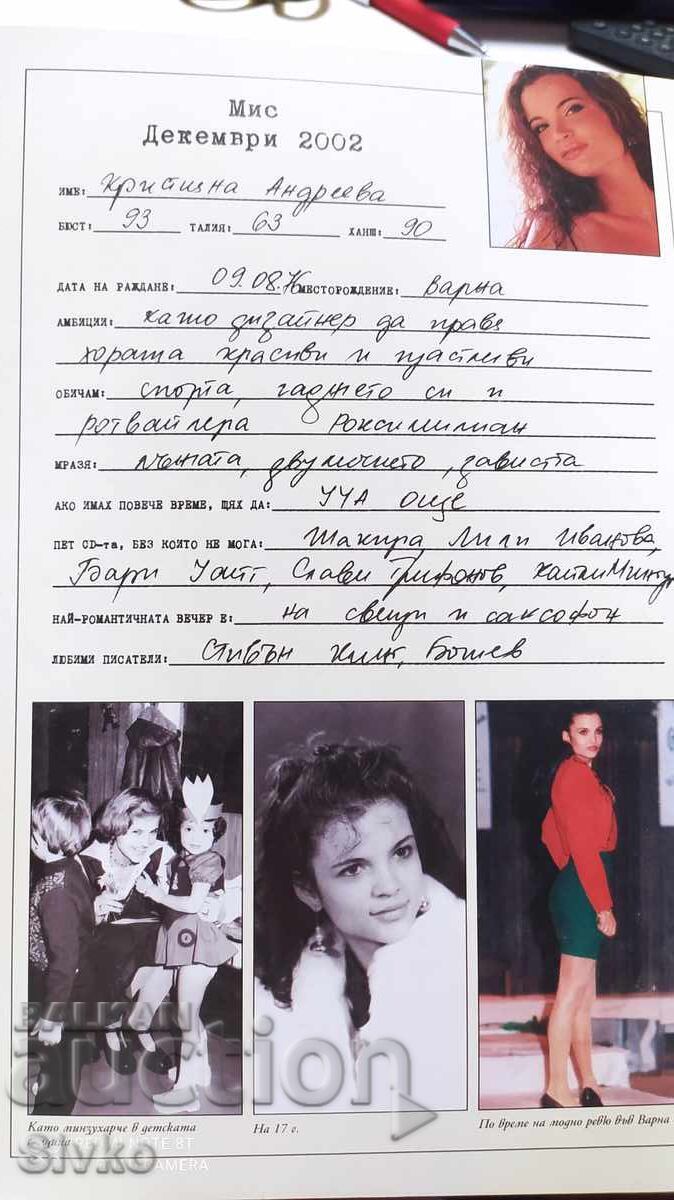 Мис
Декември 2002
ИМЕ: Кристина Андреева
БЮСТ: 93 ТАЛИЯ: 63 ХАНШ: 90
ДАТА НА РАЖДАНЕ: 09.08.76 МЕСТОРОЖДЕНИЕ: Варна
АМБИЦИИ: като дизайнер да правя
хората красиви и щастливи
ОБИЧАМ: спорта, гаджето си и
ротвайлера Роксимилиан
МРАЗЯ: лъжата, двуличието, завистта
АКО ИМАХ ПОВЕЧЕ ВРЕМЕ, ЩЯХ ДА: УЧА още
ПЕТ CD-та, БЕЗ КОИТО НЕ МОГА: Шакира, Лили Иванова,
Бари Уайт, Слави Трифонов, Кайли
НАЙ-РОМАНТИЧНАТА ВЕЧЕР Е: на свещи и саксофон
ЛЮБИМИ ПИСАТЕЛИ: Стивън Кинг, Ботев
Като минзухарче в детската
На 17 г.
По време на модно ревю във Варна
BALKAN
auction
REDMI NOTE 8T
CAMERA
Sivko